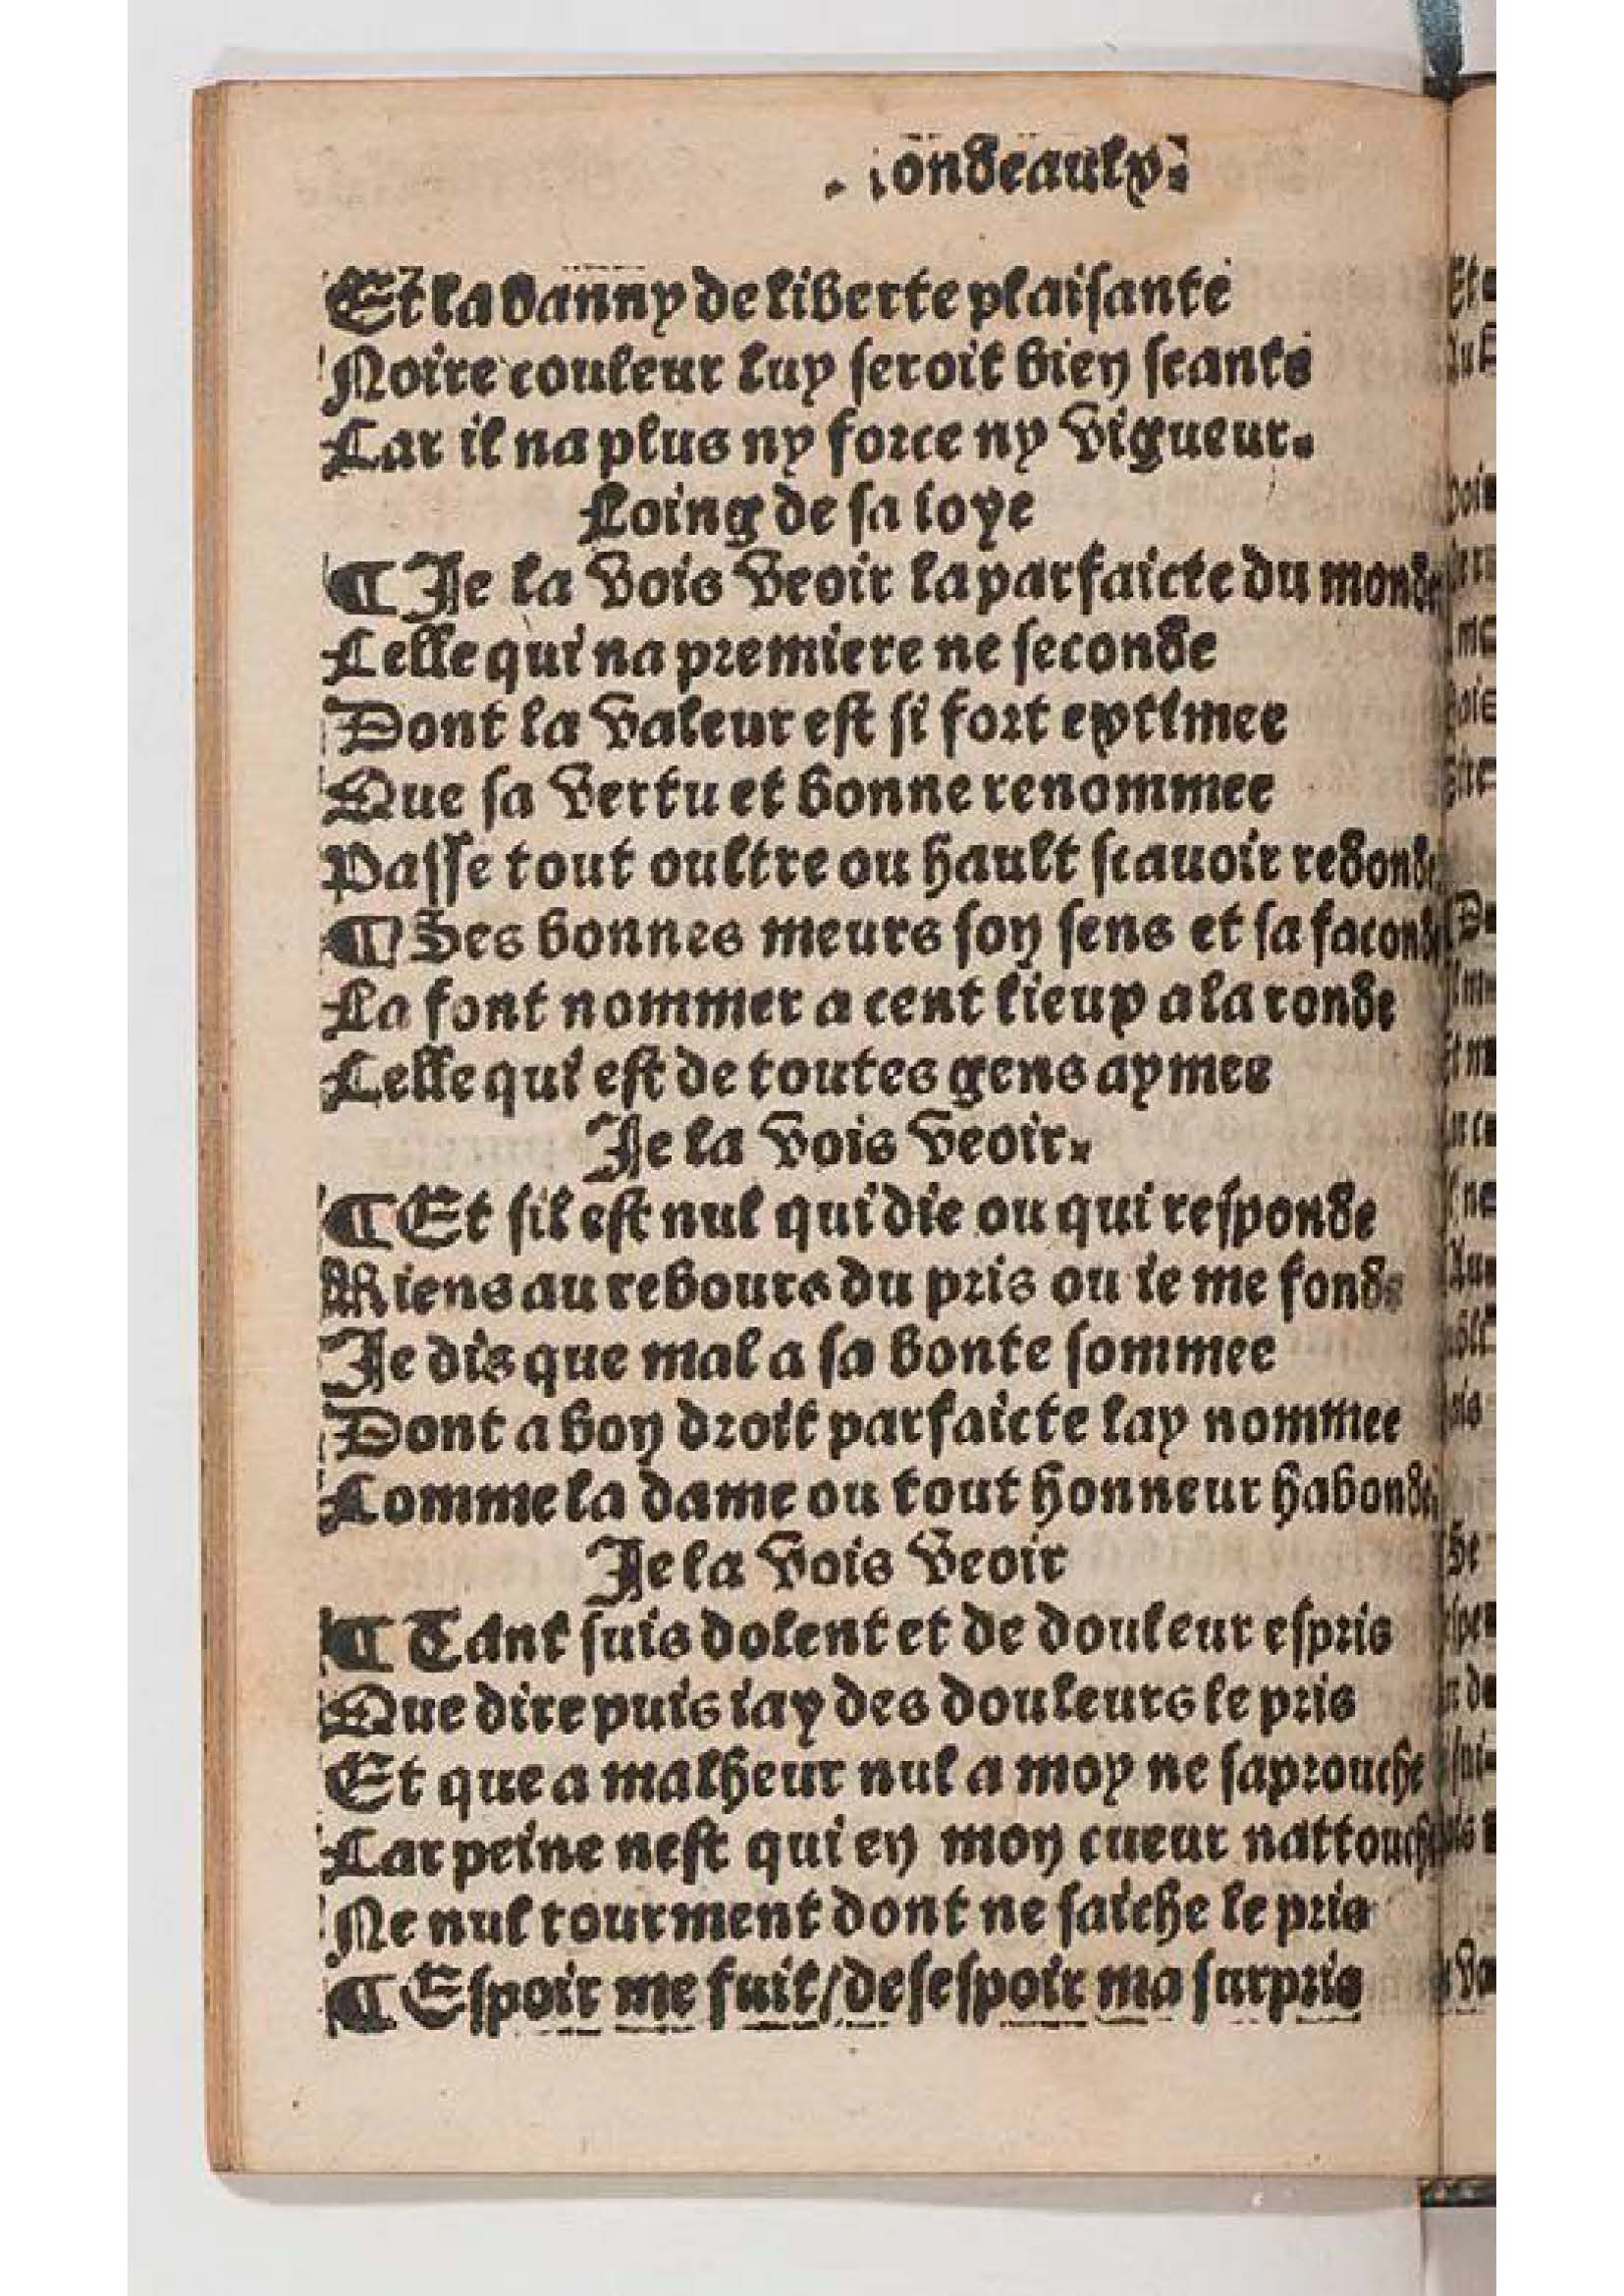 .ondeaulx.
Et la banny de liberte plaisante
Noire couleur luy seroit bien seante
Car il na plus ny force ny vigueur.
Loing de sa ioye
¶ Je la vois veoir la parfaicte du monde
Celle qui na premiere ne seconde
Dont la valeur est si fort extimee
Que sa vertu et bonne renommee
Passe tout oultre ou hault scauoir redonde
¶ Ses bonnes meurs son sens et sa faconde
La font nommer a cent lieux a la ronde
Celle qui est de toutes gens aymee
Je la vois veoir.
¶ Et sil est nul qui die ou qui responde
Riens au rebours du pris ou ie me fonde
Je dis que mal a sa bonte sommee
Dont a bon droit parfaicte lay nommee
Comme la dame ou tout honneur habonde.
Je la vois veoir
¶ Tant suis dolent et de douleur espris
Que dire puis iay des douleurs le pris
Et que a malheur nul a moy ne saprouche
Car peine nest qui en mon cueur nattouche
Ne nul tourment dont ne saiche le pris
¶ Espoir me fuit/desespoir ma surpris